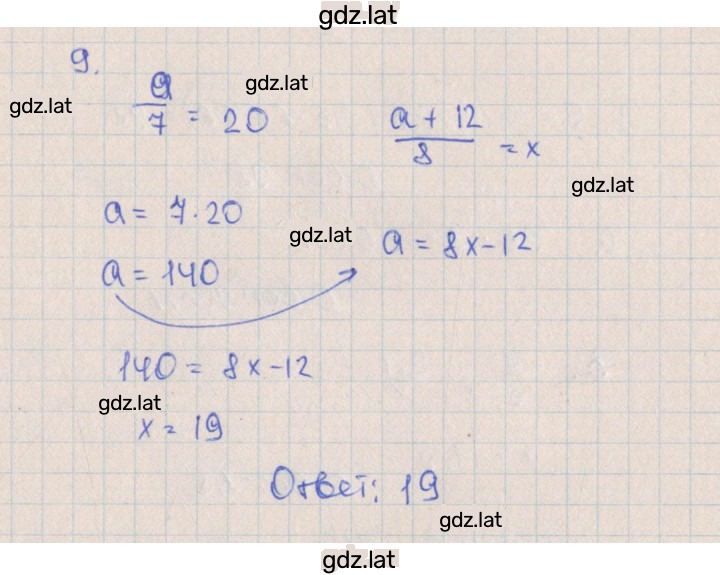 gdz.lat
9.
a/7 = 20
gdz.lat
gdz.lat
(a + 12)/8 = x
gdz.lat
a = 7 · 20
gdz.lat
a = 8x - 12
a = 140
140 = 8x - 12
gdz.lat
x = 19
Ответ: 19
gdz.lat
gdz.lat